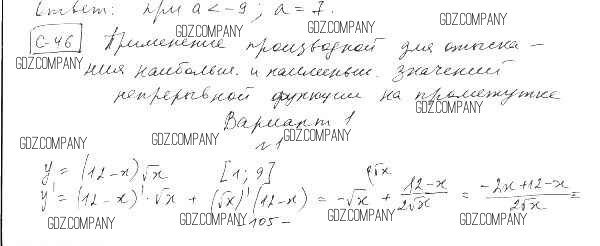 Ответ: при a < -9; a = 7.
GDZ.COMPANY GDZ.COMPANY
С-46 Применение производной для отыска-
GDZ.COMPANY GDZ.COMPANY
ния наибольш. и наименьш. значений
непрерывной функции на промежутке
GDZ.COMPANY
Вариант 1
GDZ.COMPANY GDZ.COMPANY GDZ.COMPANY
№1
y = (12-x)√x [1; 9]
y' = (12-x)'·√x + (√x)'(12-x) = -√x + (12-x)/(2√x) = (-2x+12-x)/(2√x) =
GDZ.COMPANY GDZ.COMPANY GDZ.COMPANY GDZ.COMPANY
-105-